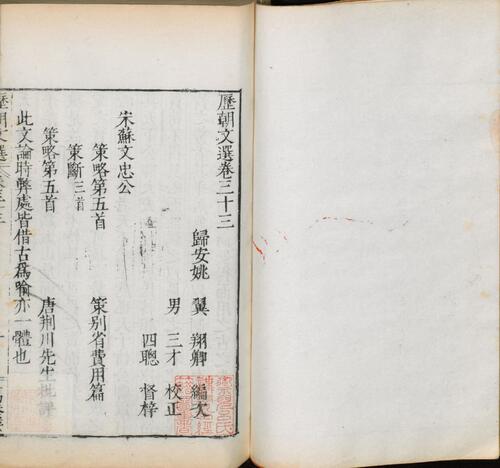 歷朝文選卷三十三
歸安姚翼翔卿編次
男三才校正
四聰督梓
宋蘇文忠公
策略第五首 策別省費用篇
策斷三首
策略第五首 唐荆川先生批評
此文論時弊處皆借古爲喻亦一體也
歷朝文選